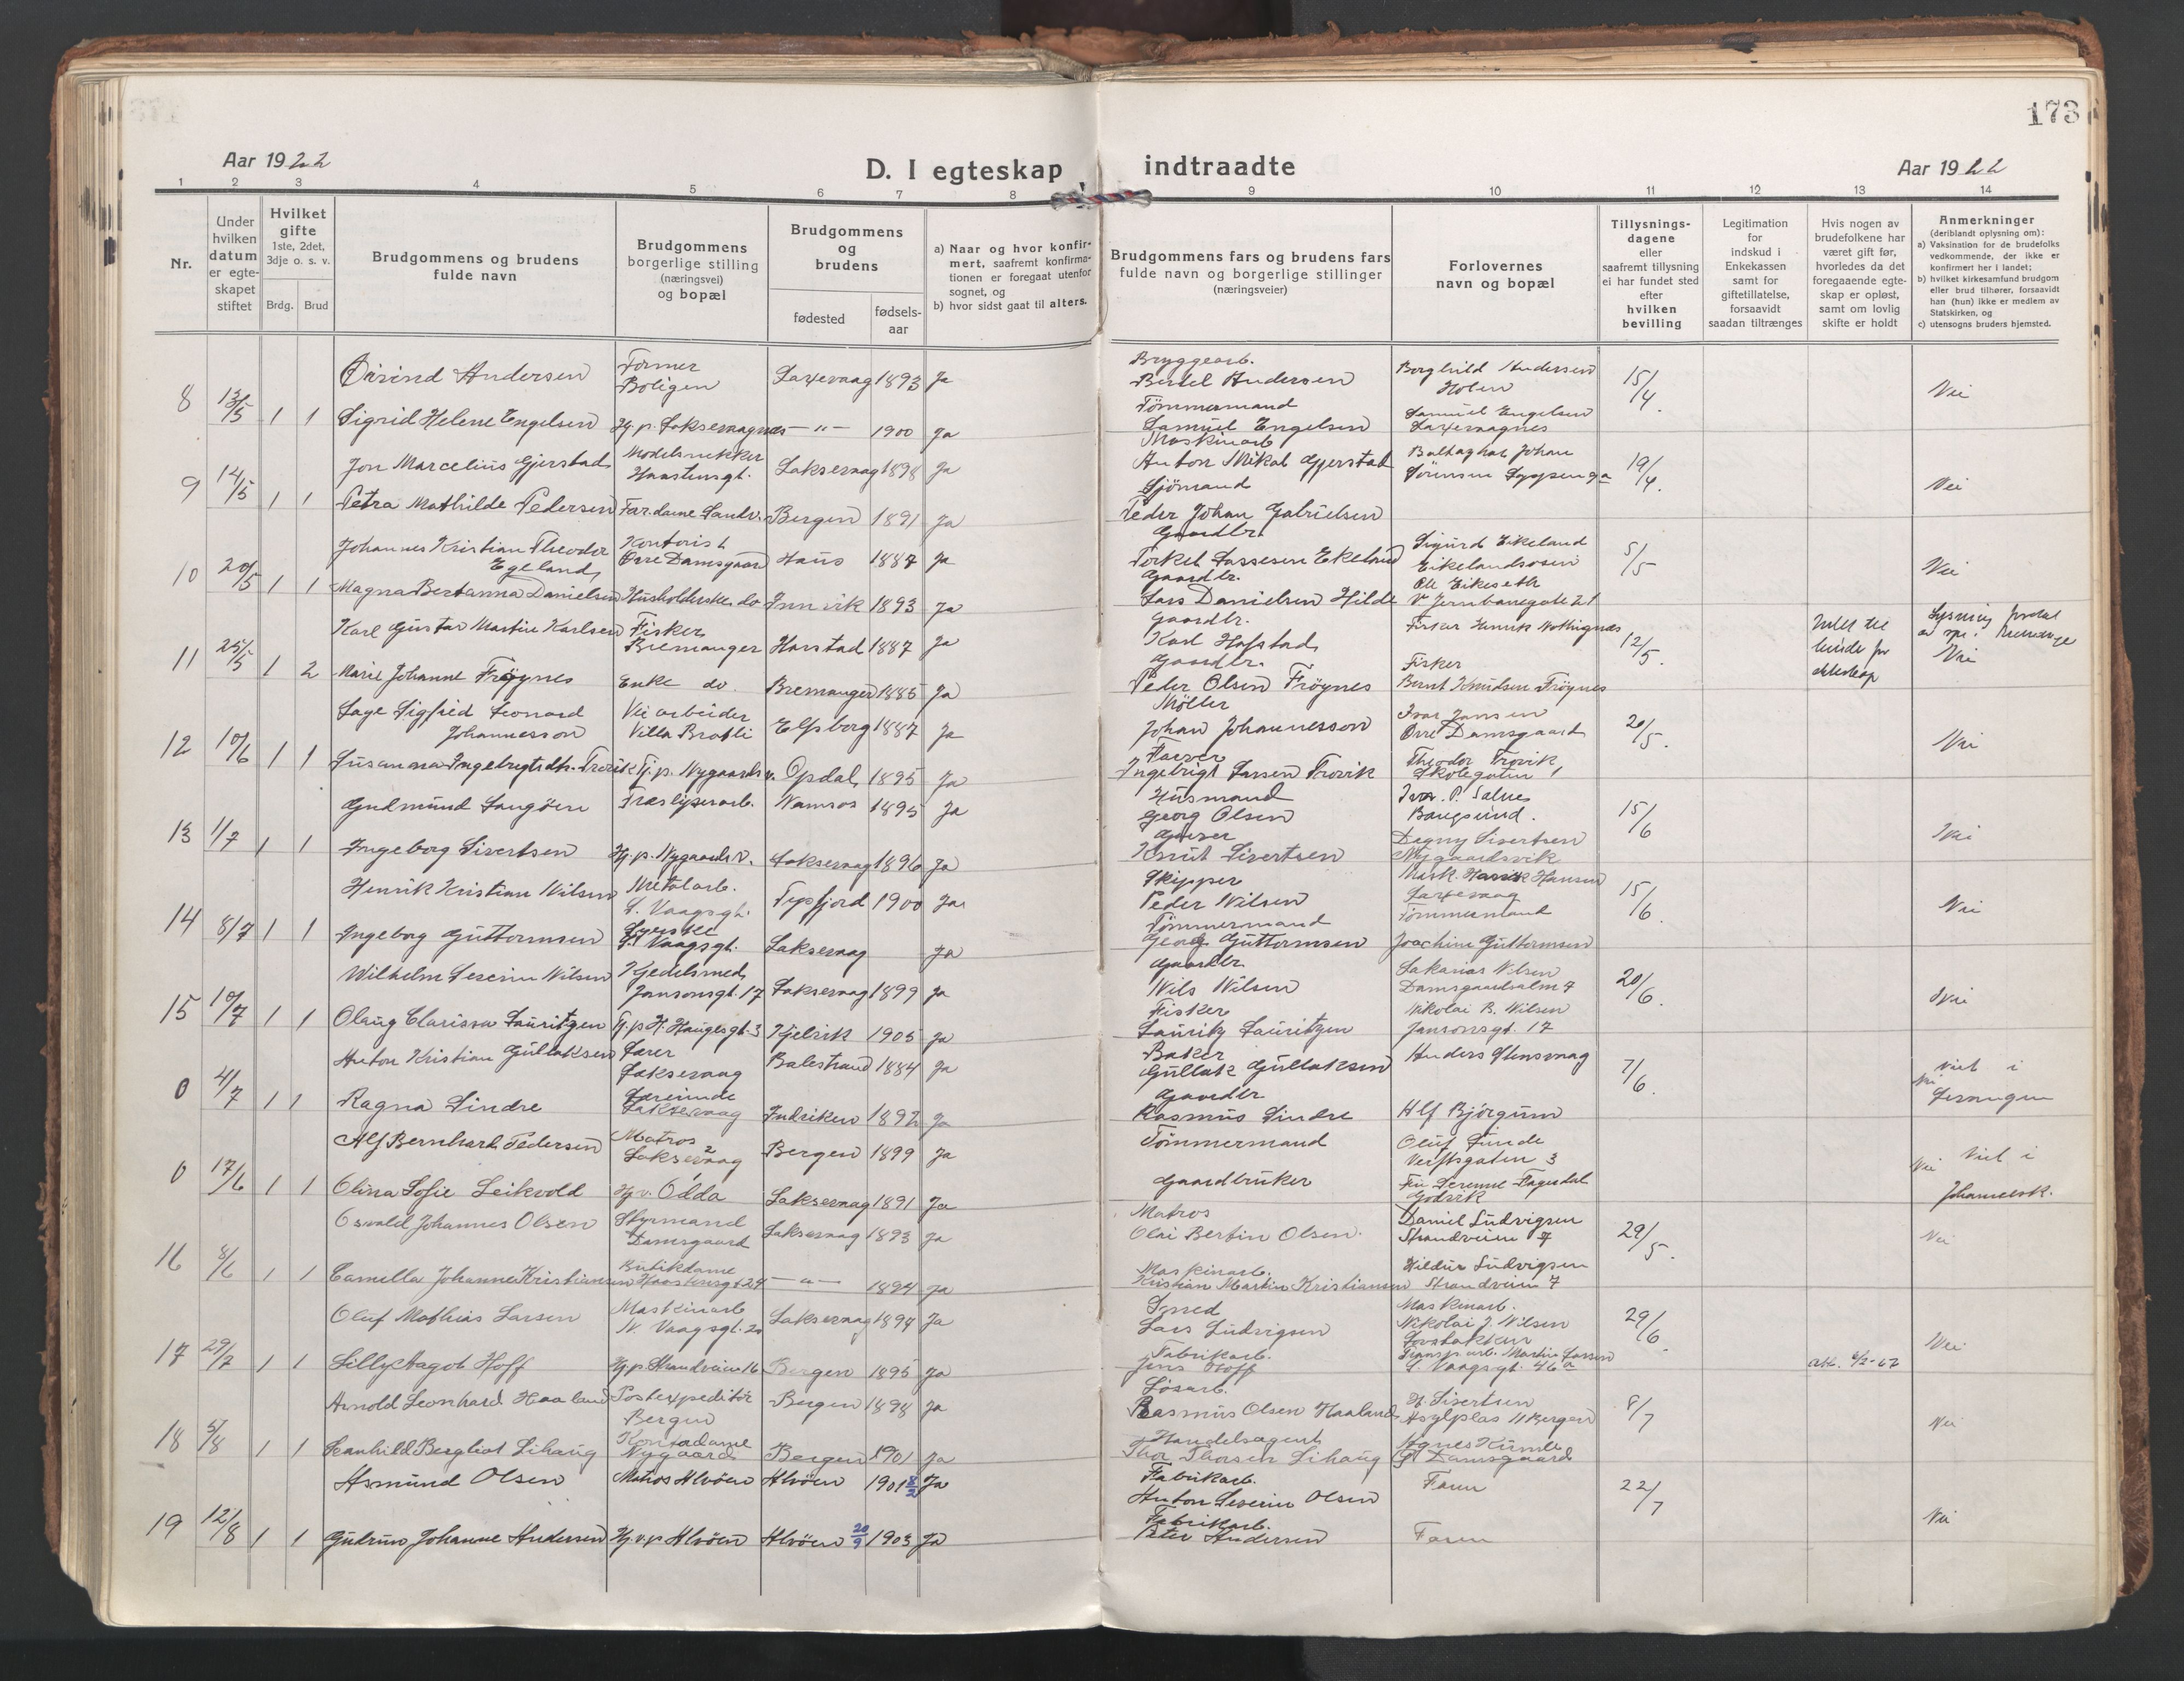 173
Aar 1922
D. I egteskap indtraadte
Aar 1922
1 2 3 4 5 6 7 8 9 10 11 12 13 14
Nr.
Under hvilken datum er egte-skapet stiftet
Hvilket gifte
1ste, 2det, 3dje o. s. v.
Brdg. Brud
Brudgommens og brudens fulde navn
Brudgommens borgerlige stilling (næringsvei) og bopæl
Brudgommens og brudens
fødested
fødsels-aar
a) Naar og hvor konfir-mert, saafremt konfirma-tionen er foregaat utenfor sognet, og
b) hvor sidst gaat til alters.
Brudgommens fars og brudens fars fulde navn og borgerlige stillinger (næringsveier)
Forlovernes navn og bopæl
Tillysnings-dagene eller saafremt tillysning ei har fundet sted efter hvilken bevilling
Legitimation for indskud i Enkekassen samt for giftetillatelse, forsaavidt saadan tiltrænges
Hvis nogen av brudefolkene har været gift før, hvorledes da det foregaaende egte-skap er opløst, samt om lovlig skifte er holdt
Anmerkninger (deriblandt oplysning om):
a) Vaksination for de brudefolks vedkommende, der ikke er konfirmert her i landet;
b) hvilket kirkesamfund brudgom eller brud tilhører, forsaavidt han (hun) ikke er medlem av Statskirken, og
c) utensogns bruders hjemsted.
8 13/5 1 1
Øivind Andersen Former Boligen Laxevaag 1893 Ja Bryggearb. Bertel Andersen Borghild Andersen Holen 15/4. Nei
Sigrid Helene Engelsen Hj. p. Laksevaagnes —"— 1900 Ja Tömmermand Samuel Engelsen Samuel Engelsen Laxevaagnes
9 14/5 1 1
Jon Marcelius Gjerstad Modelsnekker Haastensgt. Laksevaag 1898 Ja Maskinarb. Anton Mikal Gjerstad Johan 19/4. Nei
Petra Mathilde Pedersen Bergen 1891 Ja Sjömand Peder Johan Gabrielsen
10 20/5 1 1
Johannes Kristian Theodor Egeland Kontorist Övre Damsgaard Haus 1887 Ja Gaardbr. Torkel Lassesen Ekeland Sigurd Eikeland Eikelandsosen 5/5 Nei
Magna Bertanna Danielsen Husholderske do Innvik 1893 Ja Gaardbr. Lars Danielsen Hilde Ole Eikeseth V. Jernbanegate 21
11 25/5 1 2
Karl Gustav Martin Karlsen Fisker Bremanger Harstad 1887 Ja Gaardbr. Karl Hofstad Fisker Henrik 12/5. Nei
Marie Johanne Fröynes Enke do. Bremanger 1885 Ja Gaardbr. Peder Olsen Fröynes Fisker Bernt Knudsen Fröynes
12 10/6 1 1
Sage Sigfrid Leonard Johannesson Vei arbeider Villa Bratli Elfsborg 1887 Ja Möller Johan Johannesson Ivar Jansen Övre Damsgaard 20/5. Nei
Susanna Ingebrigtsdtr. Trovik Tj. p. Nygaardsv. Opdal 1895 Ja Farver Ingebrigt Larsen Trovik Theodor Trovik Skolegaten 1
13 1/7 1 1
Gudmund Langöen Træsliperarb. Namsos 1895 Ja Husmand Georg Olsen Ivar P. Salnes Bangsund. 15/6 Nei
Ingeborg Sivertsen Hj. p. Nygaardsv. Laksevaag 1896 Ja Knut Sivertsen Dagny Sivertsen Nygaardsvik
14 8/7 1 1
Henrik Kristian Nilsen Metalarb. S. Vaagsgt. Fepsfjord 1900 Ja Skipper Peder Nilsen Hansen Laxevaag 15/6. Nei
Ingeborg Guttormsen S. Vaagsgt. Laksevaag Ja Tömmermand Georg Guttormsen Tömmermand Joachim Guttormsen
15 10/7 1 1
Wilhelm Severin Nilsen Kjedelsmed Jansonsgt. 17 Laksevaag 1899 Ja Gaardbr. Nils Nilsen Sakarias Nilsen Damsgaardsalm 7 20/6. Nei
Olaug Clarissa Lauritzen Tj. p. H. Haugesgt. 3 Kjelvik 1905 Ja Fisker Lauritz Lauritzen Nikolai B. Nilsen Jansonsgt. 17
0 4/7 1 1
Anton Kristian Gullaksen Lærer Laksevaag Balestrand 1884 Ja Baker Gullak Gullaksen Anders Stensvaag 7/6. Nei Viet i
Ragna Lindre Lærerinde Laksevaag Indviken 1892 Ja Gaardbr Rasmus Lindre Alf Björgum
0 17/6 1 1
Alf Bernhard Pedersen Matros Laksevaag Bergen 1899 Ja Tömmermand Oluf Lunde Verftsgaten 3 Nei Viet i Johanneskk.
Olina Sofie Leikvold Hj. v. Odda Laksevaag 1891 Ja Gaardbruker Fagerdal Godvik
16 8/6 1 1
Osvald Johannes Olsen Styrmand Damsgaard Laksevaag 1893 Ja Matros Olai Bertin Olsen. Daniel Ludvigsen Strandveien 7 29/5. Nei
Camilla Johanne Kristiansen Butikdame Haastensgt 24 —"— 1894 Ja Maskinarb. Kristian Martin Kristiansen Hildur Ludvigsen Strandveien 7
17 29/7 1 1
Oluf Mathias Larsen Maskinarb N. Vaagsgt. 20 Laksevaag 1894 Ja Smed Lars Ludvigsen Maskinarb. Nikolai J. Nilsen Lovstakken 29/6. Nei
Lilly Aagot Hoff Hj. p. Strandveien 16 Bergen 1895 Ja Fabrikarb. Jens Hoff Transp. arb. Martin Larsen S. Vaagsgt. 46 a
18 5/8 1 1
Arnold Leonhard Haaland Postexpeditör Bergen Bergen 1898 Ja Lösarb. Rasmus Olsen Haaland H. Sivertsen Asylplas 11 Bergen 8/7 Nei
Ranhild Bergliot Lihaug Kontordame Nygaard Bergen 1901 Ja Handelsagent Thor Thorsen Lihaug Agnes Damsgaard
19 12/8 1 1
Asmund Olsen Matros Alvöen Alvöen 1901 8/2 Ja Fabrikarb. Anton Severin Olsen Faren 22/7 Nei
Gudrun Johanne Andersen Hj. v. p. Alvöen Alvöen 20/9 1903 Ja Fabrikarb. Peter Andersen Faren